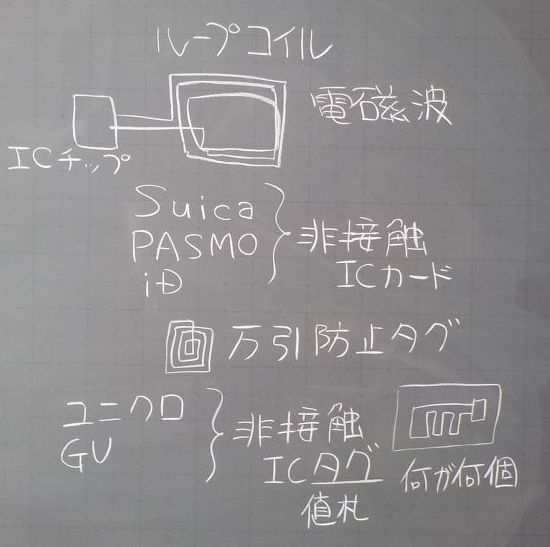 ループコイル
電磁波
ICチップ
Suica
PASMO
iD
非接触
ICカード
万引防止タグ
ユニクロ
GU
非接触
ICタグ
値札
何が何個